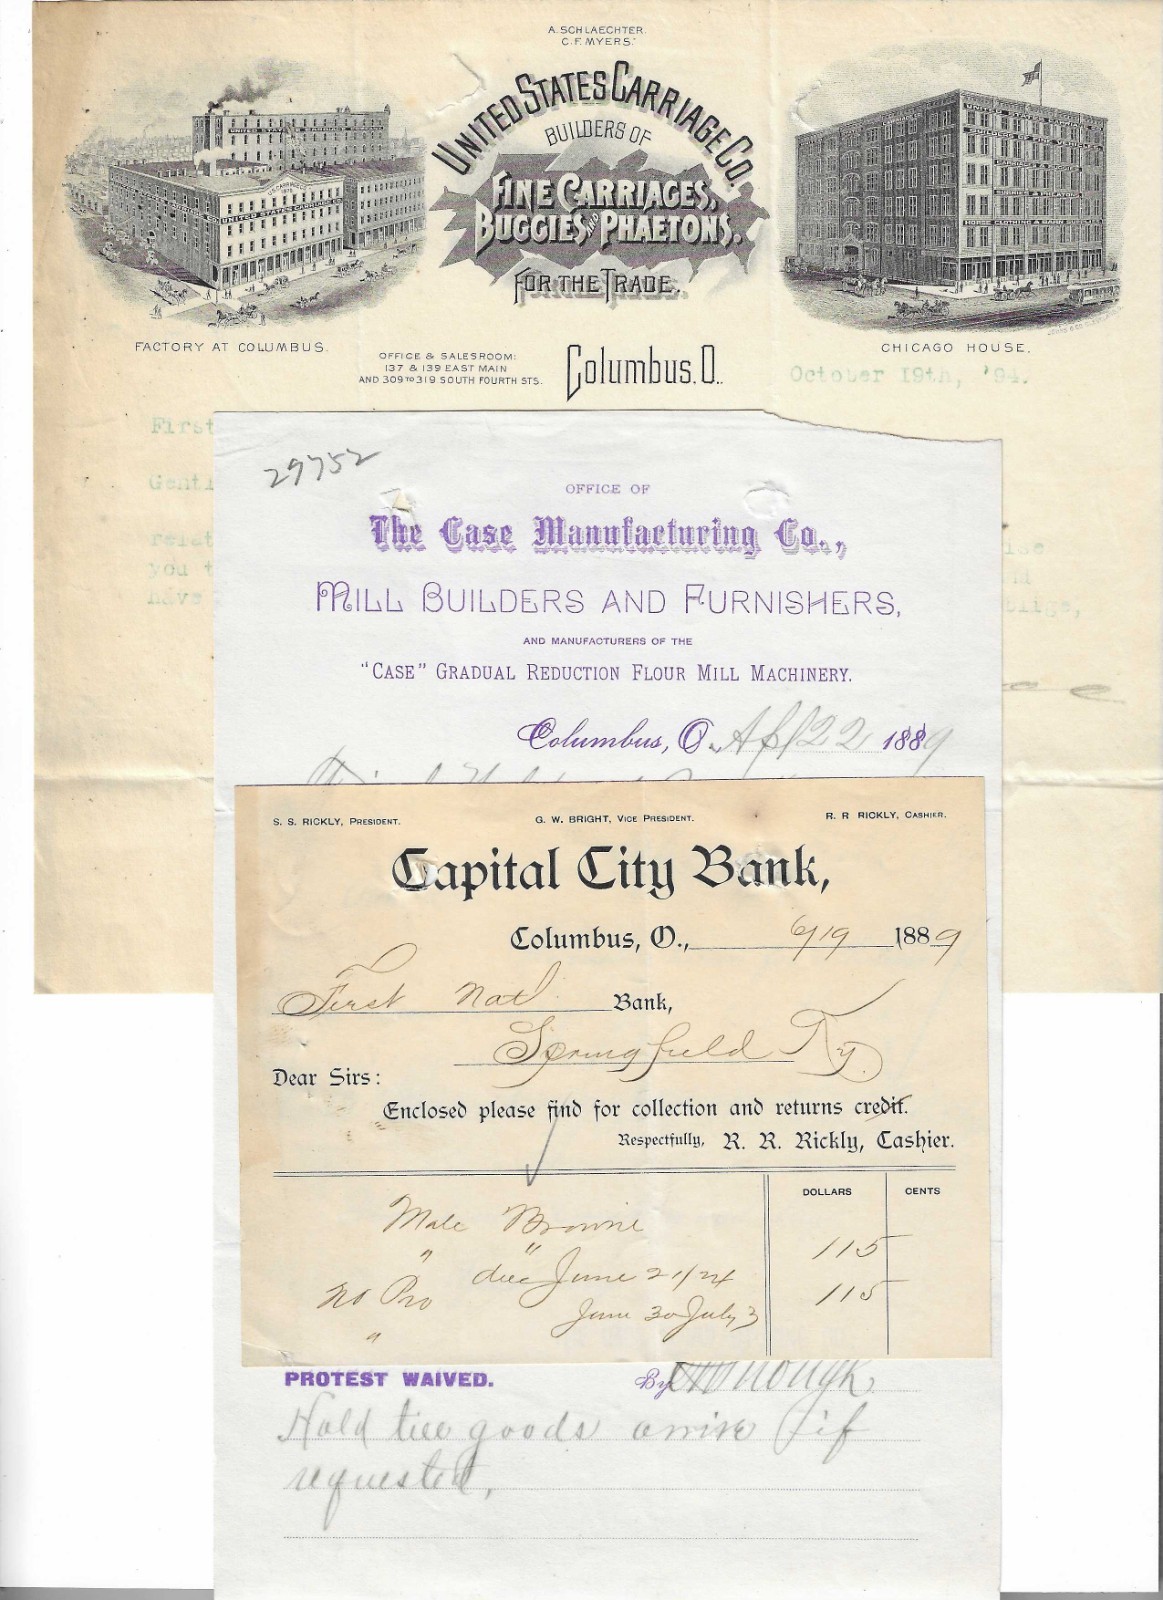 A. SCHLAECHTER.
C. F. MYERS.
UNITED STATES CARRIAGE CO.
BUILDERS OF
FINE CARRIAGES,
BUGGIES AND PHAETONS.
FOR THE TRADE.
FACTORY AT COLUMBUS.
CHICAGO HOUSE.
OFFICE & SALESROOM:
137 & 139 EAST MAIN
AND 309 TO 319 SOUTH FOURTH STS.
Columbus, O.
October 19th, '94.
First
Gentl
relat
you t
have
29752
OFFICE OF
The Case Manufacturing Co.,
MILL BUILDERS AND FURNISHERS,
AND MANUFACTURERS OF THE
"CASE" GRADUAL REDUCTION FLOUR MILL MACHINERY.
Columbus, O., Apl 22 1889
S. S. RICKLY, PRESIDENT.
G. W. BRIGHT, VICE PRESIDENT.
R. R RICKLY, CASHIER.
Capital City Bank,
Columbus, O., 6/19 1889
First Natl Bank,
Springfield Ky.
Dear Sirs:
Enclosed please find for collection and returns credit.
Respectfully, R. R. Rickly, Cashier.
DOLLARS CENTS
Browne 115
" " due June 21/24
No Pro June 30 July 3 115
"
PROTEST WAIVED.
By
Hold till goods arrive if
requested.